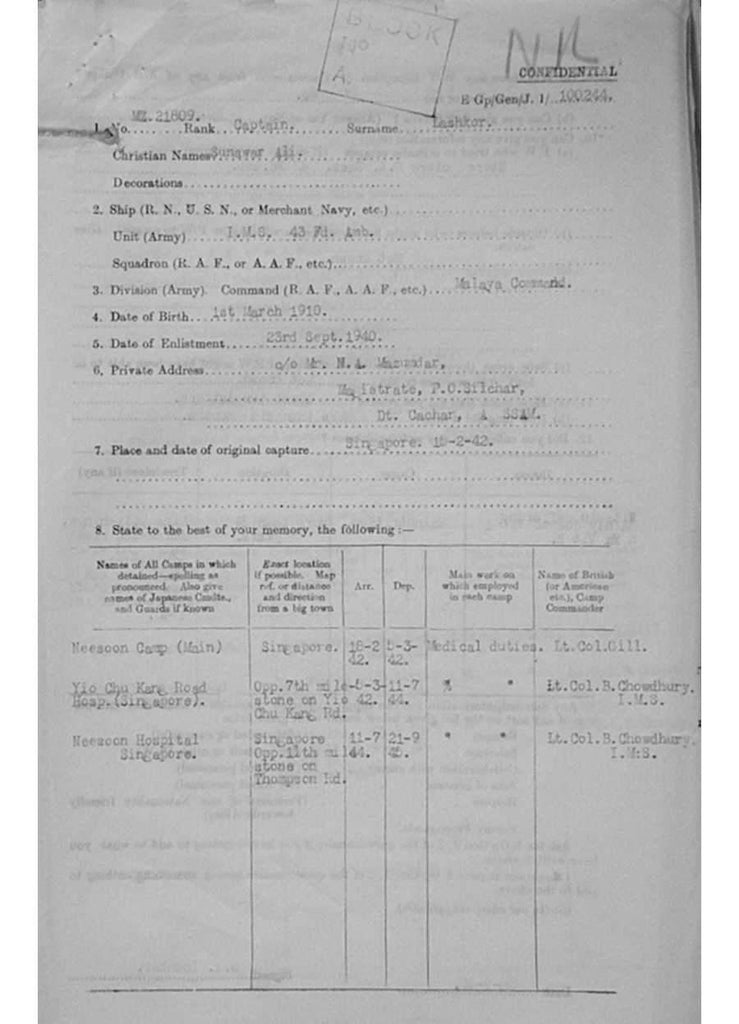 BLOCK
A.
CONFIDENTIAL
E Gp/Gen/J. 1/ 100244.
1. No. MZ.21809. Rank Captain. Surname Lashkor.
Christian Names Sunawar Ali.
Decorations
2. Ship (R. N., U. S. N., or Merchant Navy, etc.)
Unit (Army) I.M.S. 43 Fd. Amb.
Squadron (R. A. F., or A. A. F., etc.)
3. Division (Army). Command (R. A. F., A. A. F., etc.) Malaya Command.
4. Date of Birth 1st March 1910.
5. Date of Enlistment 23rd Sept.1940.
6. Private Address c/o Mr. N.A. Mazumdar,
Magistrate, P.O.Silchar,
Dt. Cachar, A SSAM.
7. Place and date of original capture Singapore. 15-2-42.
8. State to the best of your memory, the following :—
Names of All Camps in which detained—spelling as pronounced. Also give names of Japanese Comdts., and Guards if known
Exact location if possible. Map ref. or distance and direction from a big town
Arr.
Dep.
Main work on which employed in each camp
Name of British (or American etc.), Camp Commander
Neesoon Camp (Main) Singapore. 18-2 5-3- Medical duties. Lt.Col.Gill.
42. 42.
Yio Chu Kang Road Opp.7th mile -5-3- 11-7 " " Lt.Col.B.Chowdhury.
Hosp.(Singapore). stone on Yio 42. 44. I.M.S.
Chu Kang Rd.
Neesoon Hospital Singapore 11-7 21-9 " " Lt.Col.B.Chowdhury.
Singapore. Opp.11th mil 44. 45. I.M.S.
stone on
Thompson Rd.